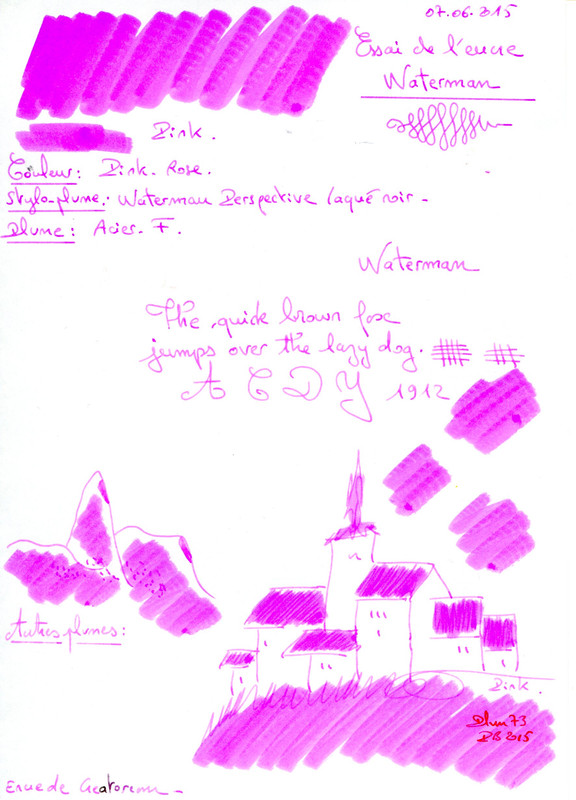 07.06.2015
Essai de l'encre
Waterman
Pink.
Couleur: Pink. Rose.
Stylo-plume: Waterman Perspective laqué noir -
Plume: Acier. F.
Waterman
The quick brown fox
jumps over the lazy dog.
A C D Y 1912
Autres plumes:
Pink.
Plum73
PB 2015